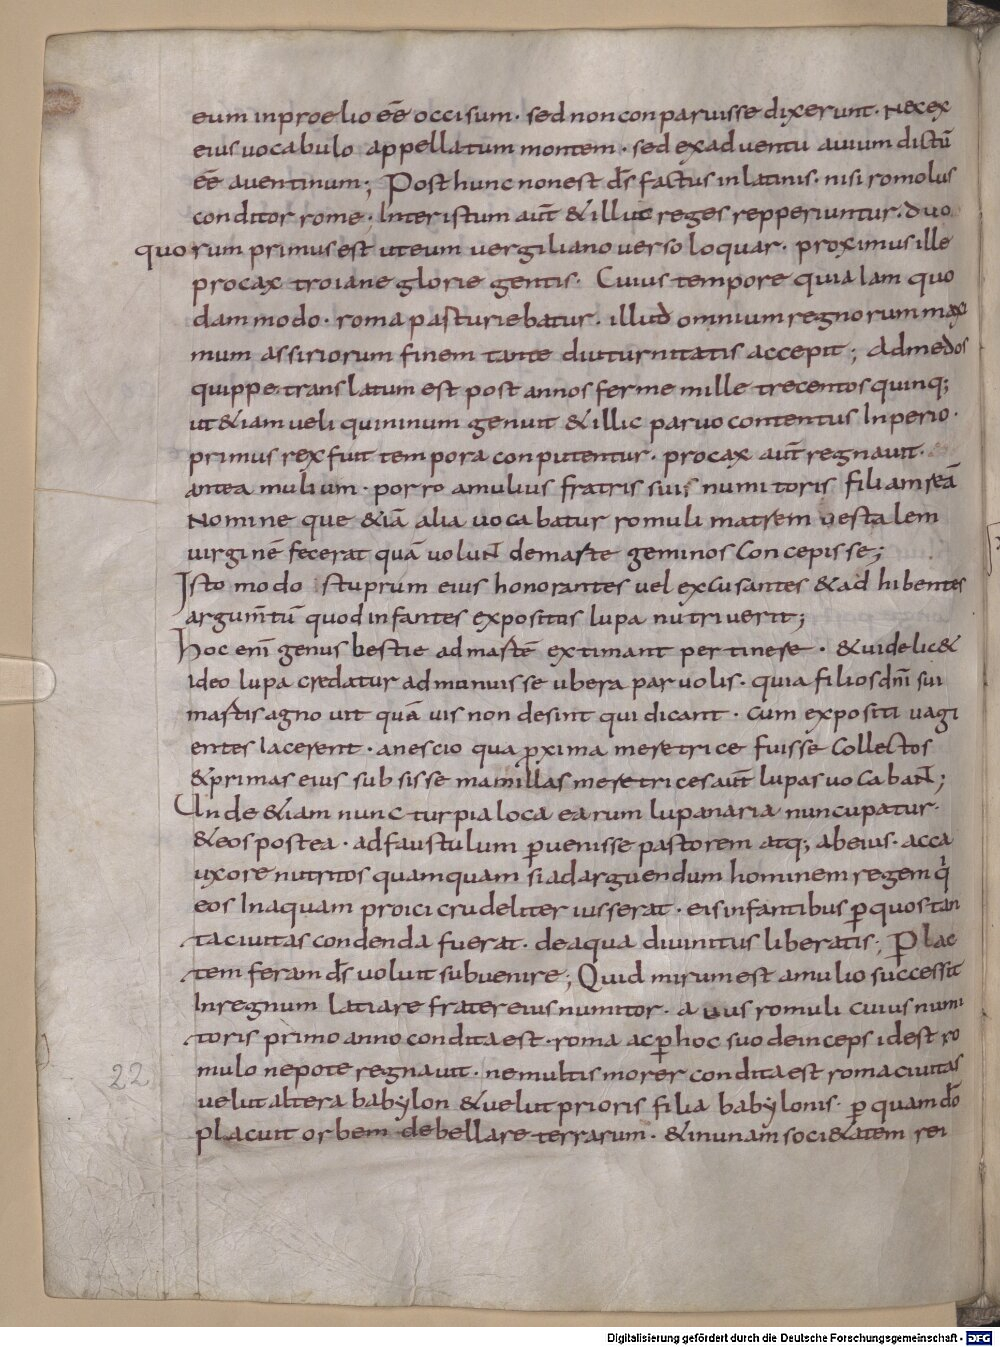 eum inproelio eē occisum · sed non conparuisse dixerunt · Nec ex
eius uocabulo appellatum montem · sed ex aduentu auium dictū
eē auentinum ; Post hunc non est d̄s factus in latinis · nisi romolus
conditor rome · Inter istum aut̄ & illut reges repperiuntur · duo
quorum primus est ut eum uergiliano uerso loquar · proximus ille
procax troiane glorie gentis · Cuius tempore quia Iam quo
dammodo · roma pasturiebatur · illud omnium regnorum maxi
mum assiriorum finem tante diuturnitatis accepit ; Ad medos
quippe translatum est post annos ferme mille trecentos quinq;
ut &iam ueli quininum genuit & illic paruo contentus Inperio ·
primus rex fuit tempora conputentur · procax aut̄ regnauit ·
antea mulium · porro amulius fratris suis numitoris filiam reā
Nomine que &iā alia uocabatur romuli matrem uestalem
uirginē fecerat quā uolunt demarte geminos Concepisse ;
Isto modo stuprum eius honorantes uel excusantes & adhibentes
argum̄tū quod infantes expositus lupa nutriuerit ;
Hoc enī genus bestie ad martē extimant pertinere · & uidelic&
ideo lupa credatur admunuisse ubera paruolis · quia filios dn̄i sui
martis agnouit quā uis non desint qui dicant · Cum expositi uagi
entes lacerent · anescio qua p̱xima meretrice fuisse Collectos
& primas eius subsisse mamillas meretrices aut̄ lupas uocabant ;
Unde &iam nunc turpia loca earum lupanaria nuncupatur ·
& eos postea · ad faustulum p̱uenisse pastorem atq; ab eius · acca
uxorē nutritos quamquam si ad arguendum hominem regem q̇
eos Inaquam proici crudeliter iusserat · eis infantibus p̱ quos tan
ta ciuitas condenda fuerat · de aqua diuinitus liberatis ; P̱ lac
tem feram d̄s uoluit subuenire ; Quid mirum est amulio successit
Inregnum latiare frater eius numitor · auus romuli cuius numi
toris primo anno condita est · roma ac p̱ hoc suo deinceps idest ro
mulo nepote regnauit · ne multis morer condita est roma ciuitas
uelut altera babylon & uelut prioris filia babylonis · p̱ quam dō
placuit orbem debellare terrarum · & inunam soci&atem rei
22
Digitalisierung gefördert durch die Deutsche Forschungsgemeinschaft - DFG